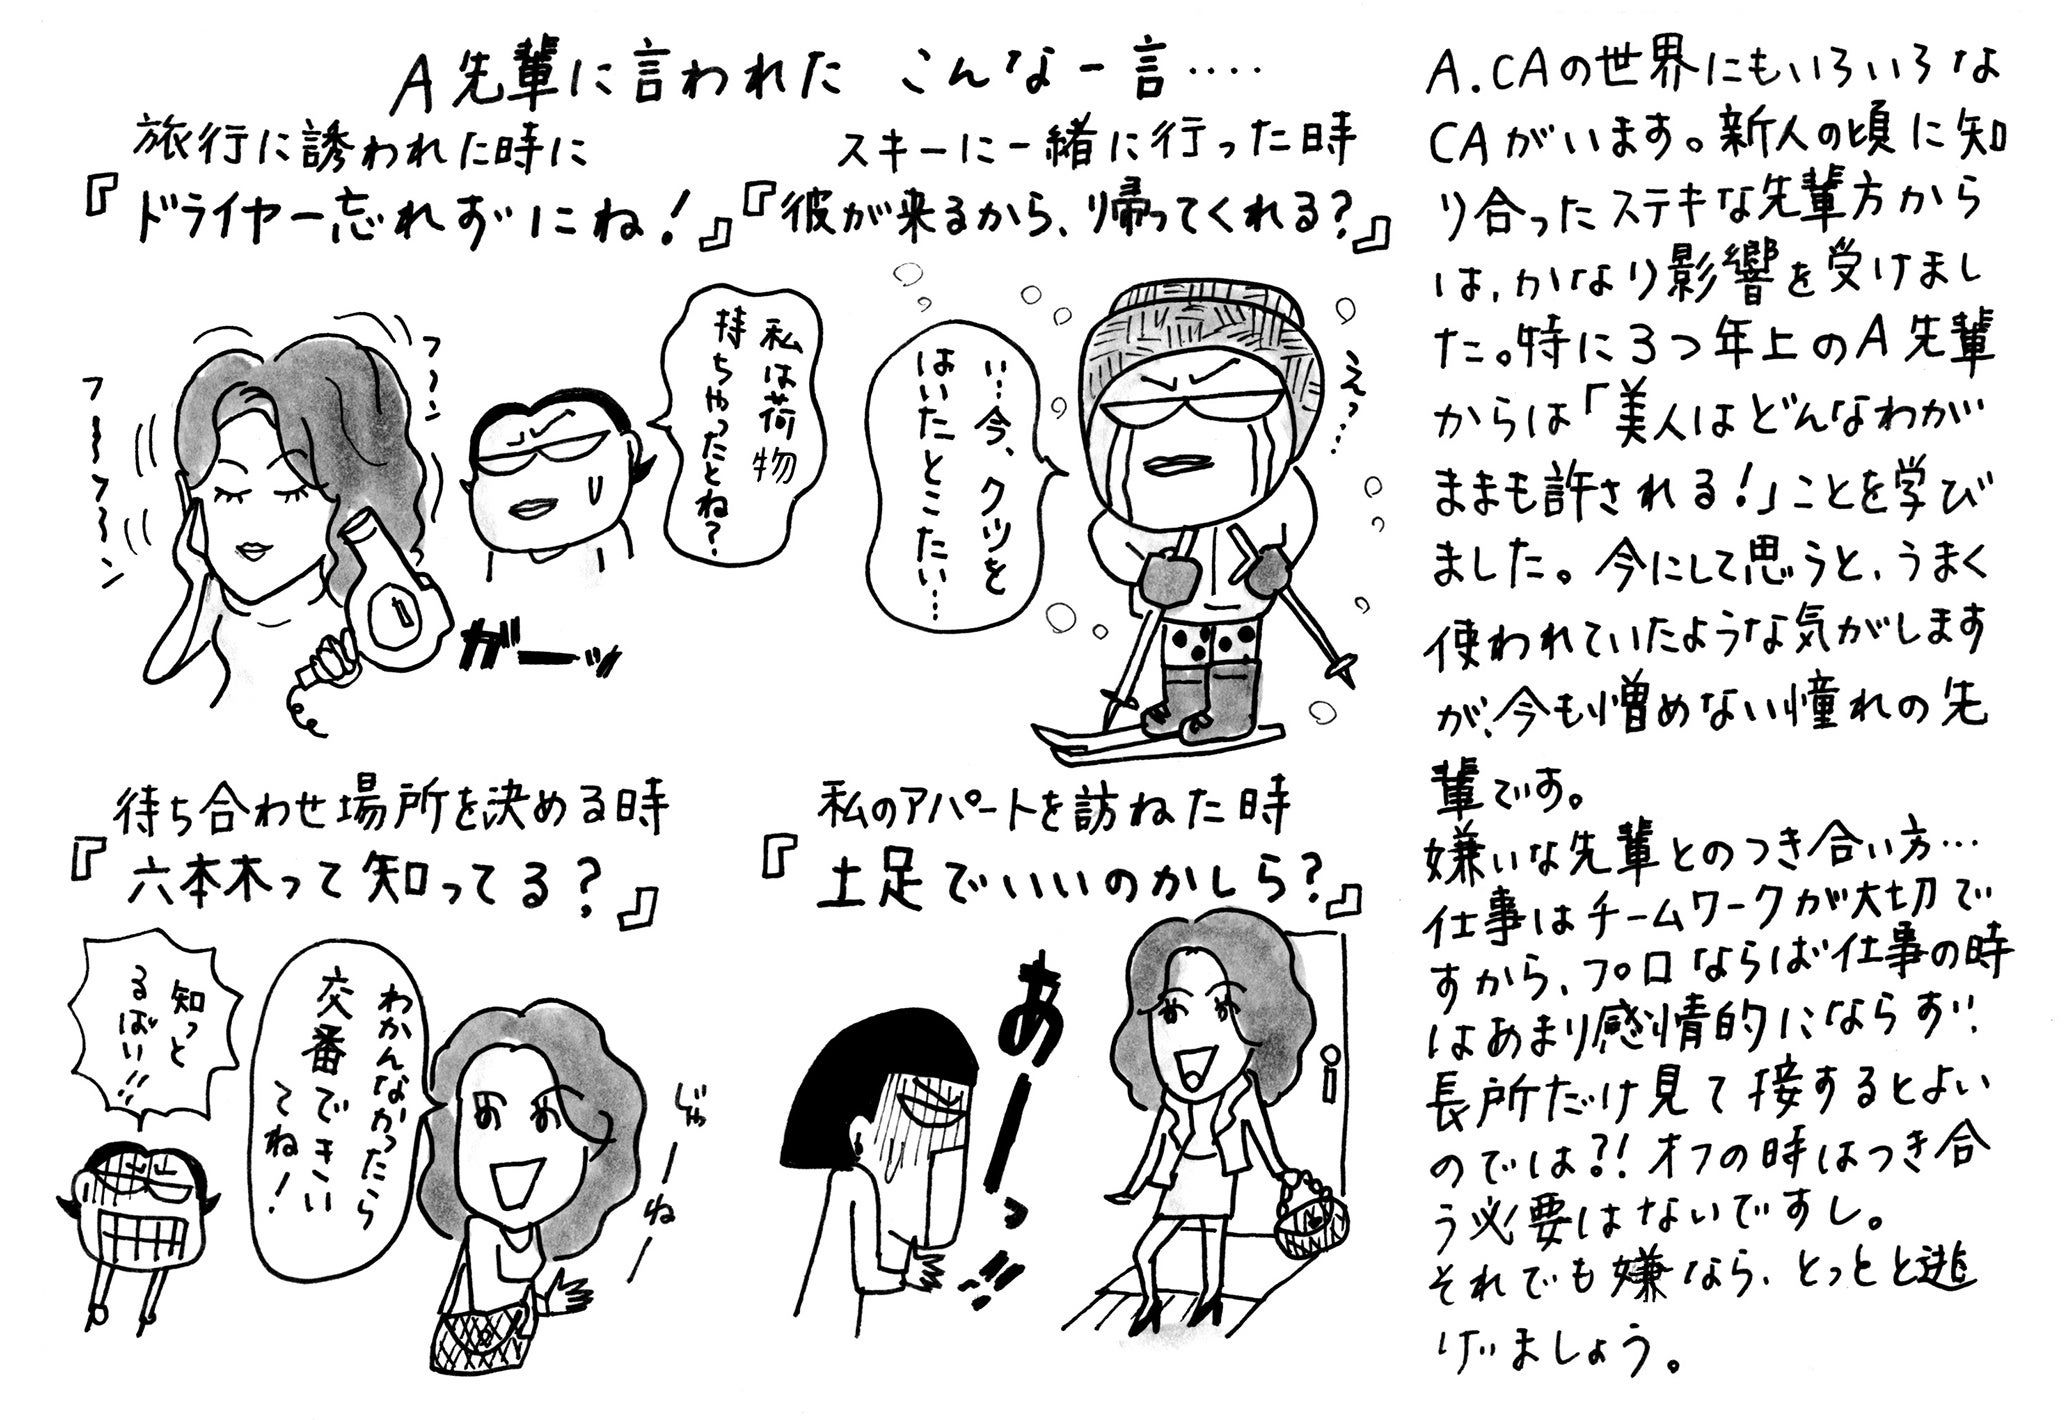 A先輩に言われた こんな一言‥‥
旅行に誘われた時に
『ドライヤー忘れずにね!』
フーン
フーーフーン
私は荷物
持ちやったとね?
ガーッ
スキーに一緒に行った時
『彼が来るから、帰ってくれる?』
えっ…
い…今、クツを
はいたとこたい…
待ち合わせ場所を決める時
『六本木って知ってる?』
知っと
るばい!!
わかんなかったら
交番できい
てね!
じゃーねー
私のアパートを訪ねた時
『土足でいいのかしら?』
あーっ!!
A.CAの世界にもいろいろな
CAがいます。新人の頃に知
り合ったステキな先輩方から
は,かなり影響を受けまし
た。特に3つ年上のA先輩
からは「美人はどんなわが
ままも許される!」ことを学び
ました。今にして思うと、うまく
使われていたような気がします
が、今も憎めない憧れの先
輩です。
嫌いな先輩とのつき合い方…
仕事はチームワークが大切で
すから、プロならば仕事の時
はあまり感情的にならず!
長所だけ見て接するとよい
のでは?!オフの時はつき合
う必要はないですし。
それでも嫌なら、とっとと逃
げましょう。